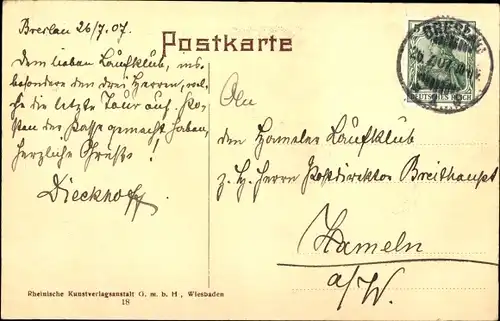 Breslau 26/7.07.
Postkarte
Dem lieben Laufklub, ins-
besondere den drei Herren, wel-
che die letzte Tour auf Ko-
sten der Kasse gemacht haben,
herzliche Grüße!
Dieckhoff
An
den Hamelner Laufklub
z. H. Herrn Postdirektor Breithaupt
Hameln
a/W.
DEUTSCHES REICH
Rheinische Kunstverlagsanstalt G. m. b. H., Wiesbaden
18